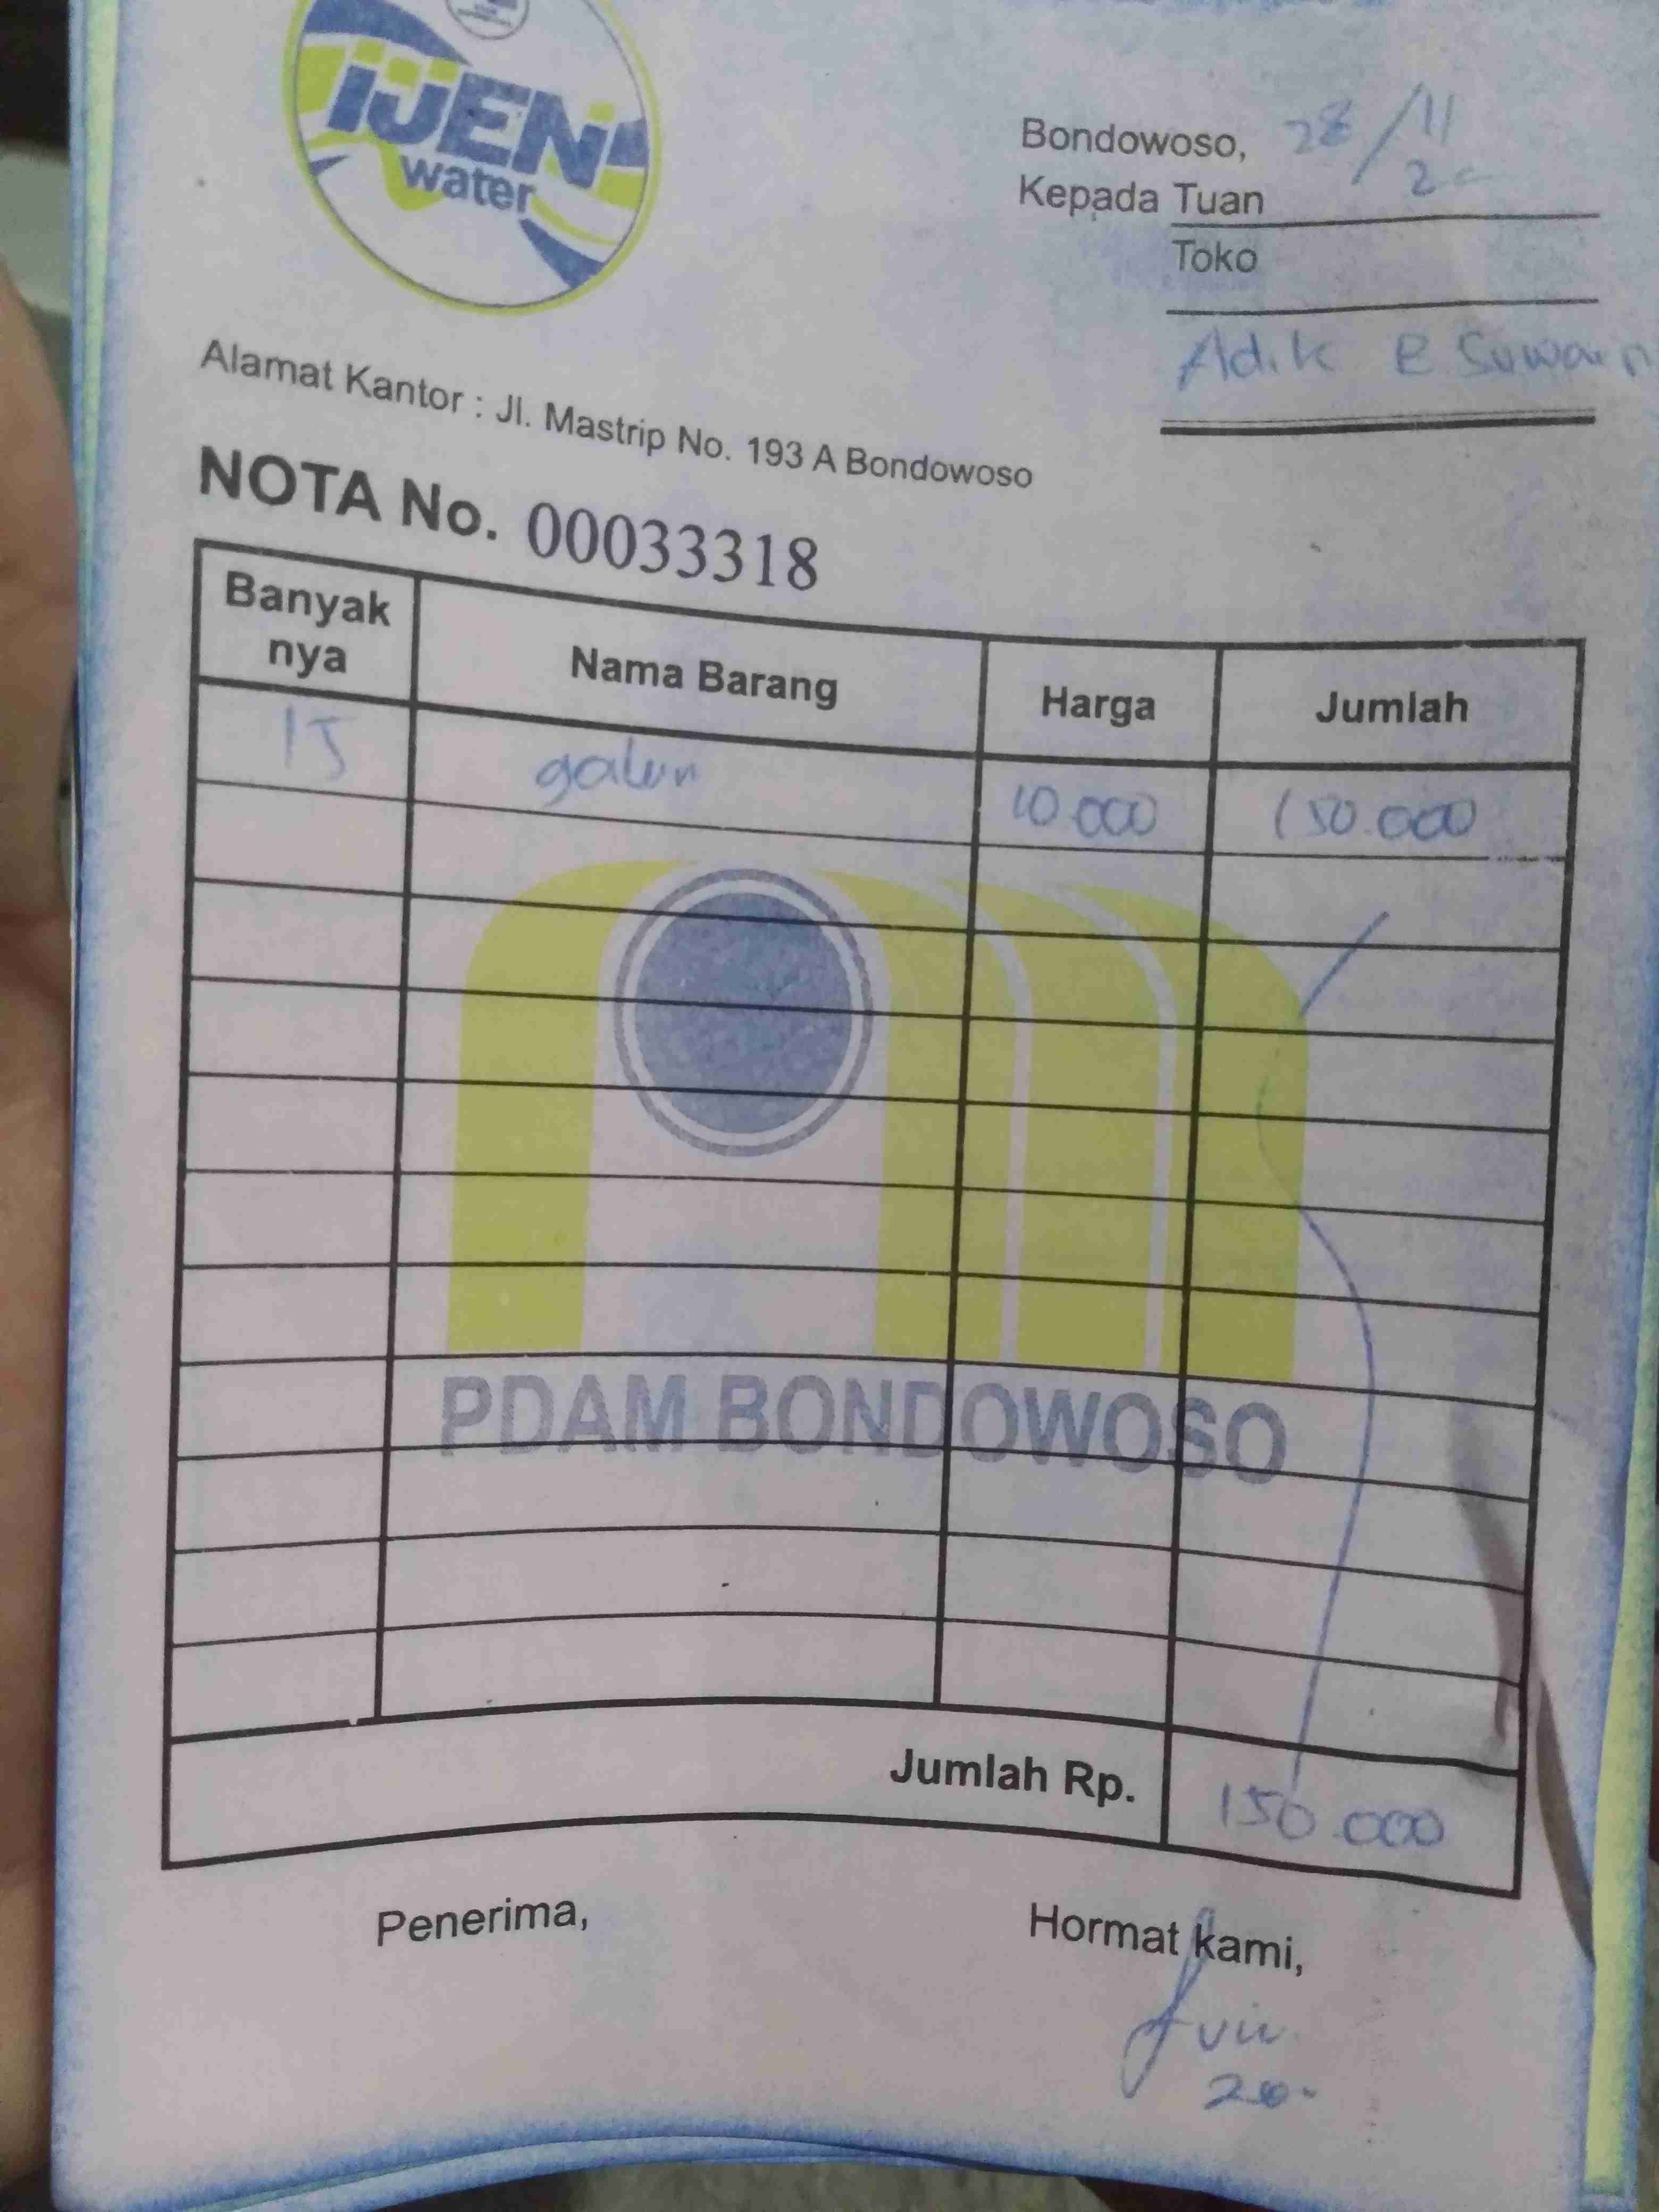 iJEN
water
Bondowoso, 28/11
20
Kepada Tuan
Toko
Adik B Suwar
Alamat Kantor : Jl. Mastrip No. 193 A Bondowoso
NOTA No. 00033318
Banyak nya Nama Barang Harga Jumlah
15 galon 10.000 150.000
PDAM BONDOWOSO
Jumlah Rp. 150.000
Penerima, Hormat kami,